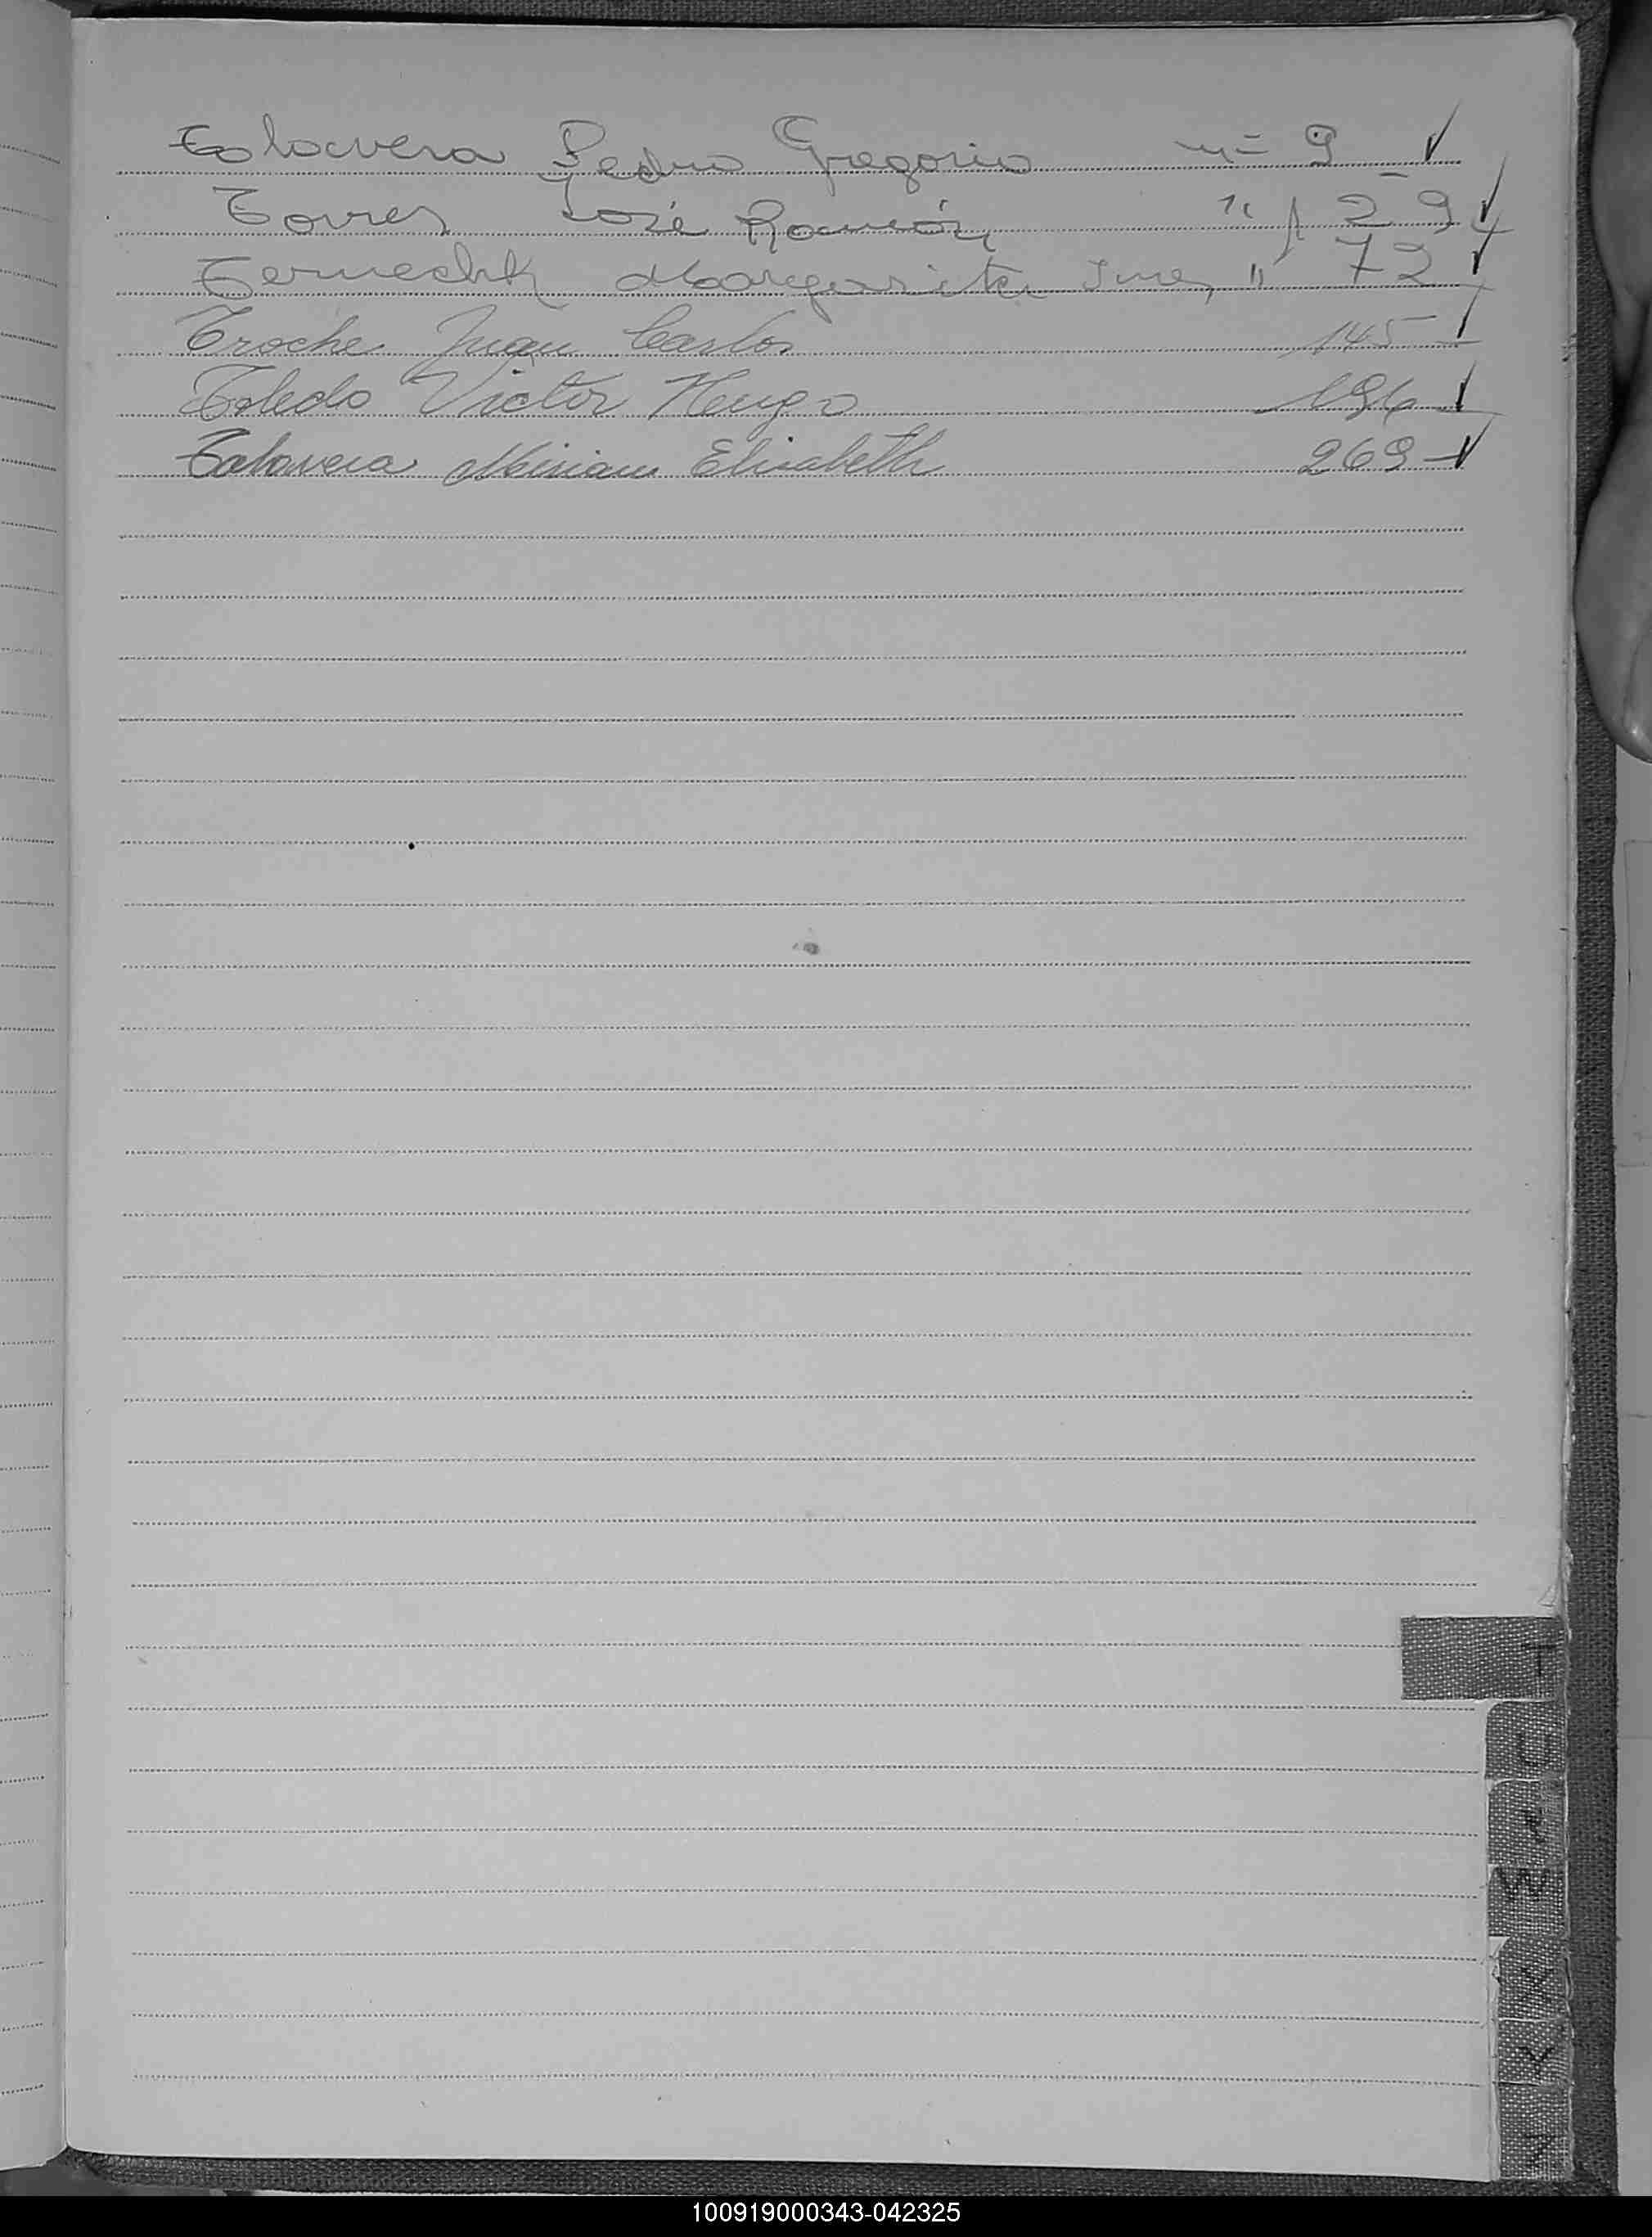 Talavera Pedro Gregorio nº 9
Torres José Ramón " 29
Margarita Ines " 72
Troche Juan Carlos 145
Toledo Victor Hugo 196
Talavera Miriam Elisabeth 269
T
U
W
X
Y
Z
100919000343-042325